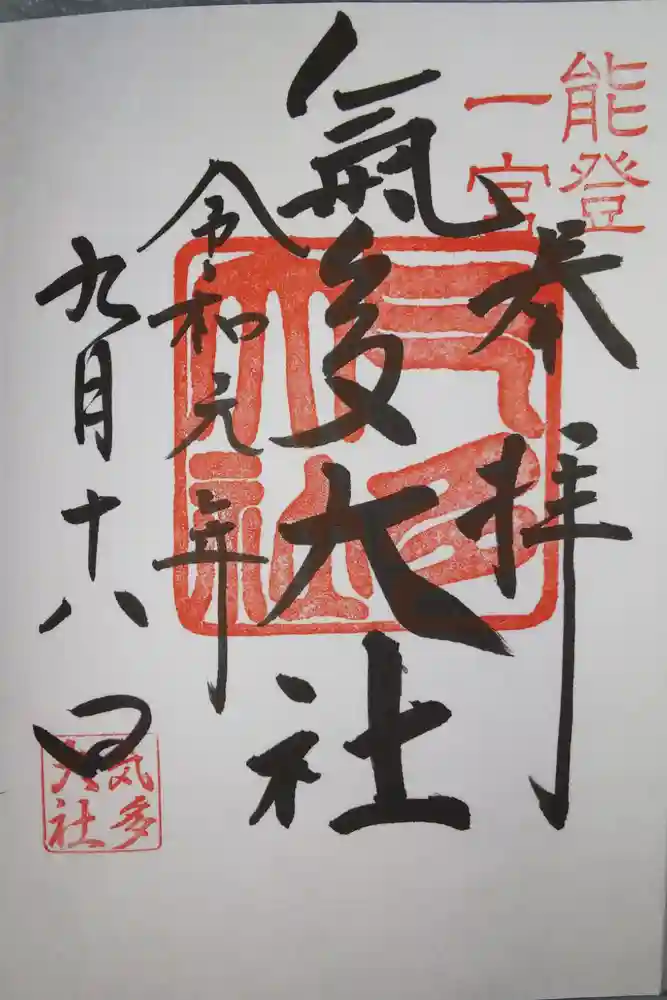 能登
一宮
奉拝
氣多大社
氣多大社
令和元年
九月十八日
気多
大社